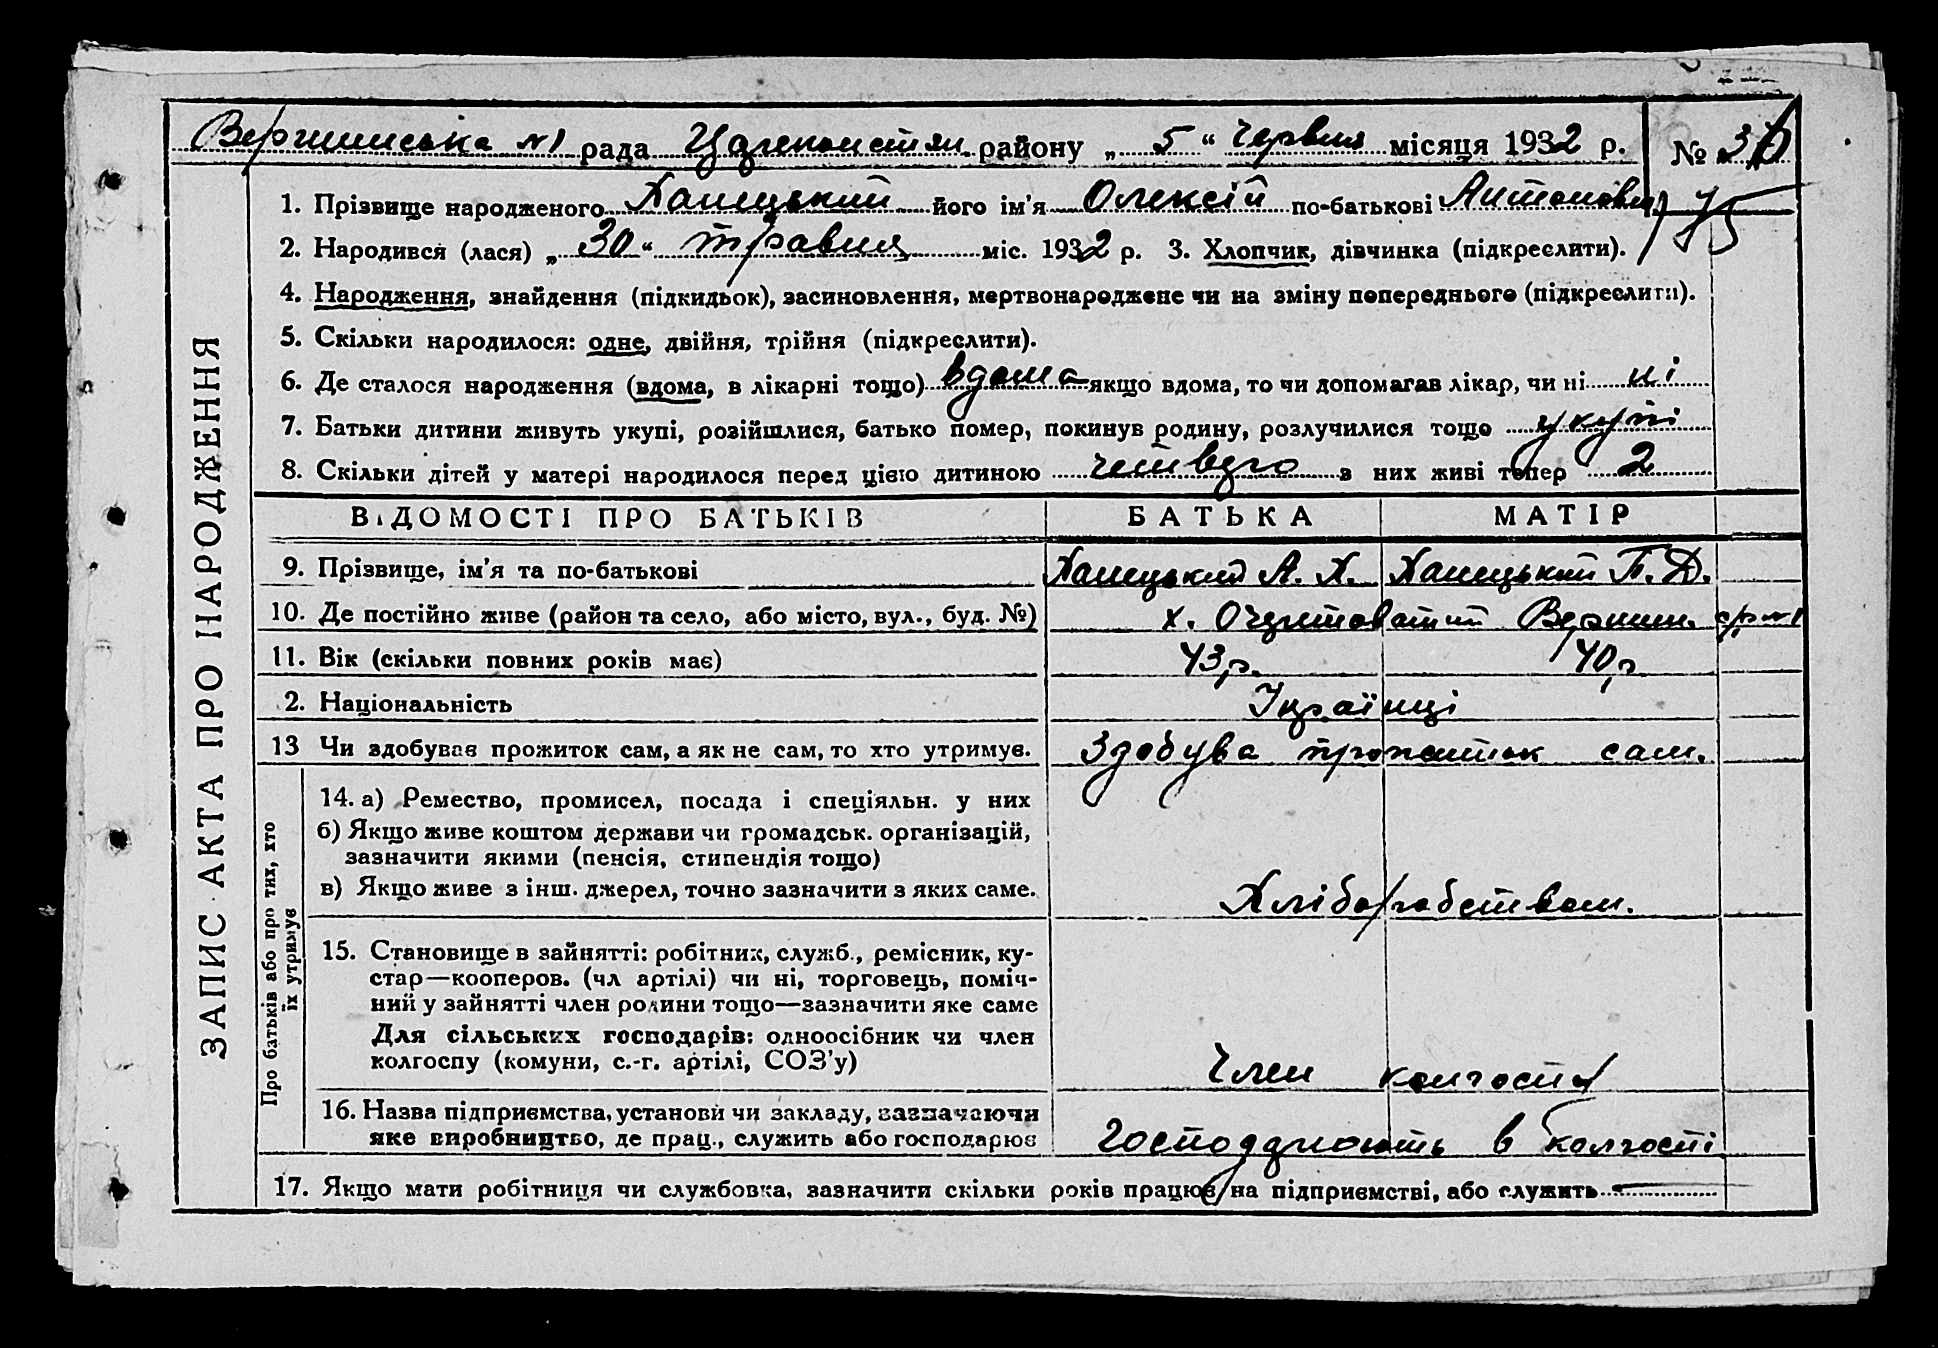 Вершинська №1 рада Царекостян. району „ 5 “ Червня місяця 1932 р. №
1. Прізвище народженого Ханецький його ім'я Олексій по-батькові Антонович 75
2. Народився (лася) „ 30 “ травня міс. 1932 р. 3. Хлопчик, дівчинка (підкреслити).
4. Народження, знайдення (підкидьок), засиновлення, мертвонароджене чи на зміну попереднього (підкреслити).
5. Скільки народилося: одне, двійня, трійня (підкреслити).
6. Де сталося народження (вдома, в лікарні тощо) вдома якщо вдома, то чи допомагав лікар, чи ні ні
7. Батьки дитини живуть укупі, розійшлися, батько помер, покинув родину, розлучилися тощо укупі
8. Скільки дітей у матері народилося перед цією дитиною четверо з них живі тепер 2
ВІДОМОСТІ ПРО БАТЬКІВ БАТЬКА МАТІР
9. Прізвище, ім'я та по-батькові Ханецький А. Х. Ханецький П. Д.
10. Де постійно живе (район та село, або місто, вул., буд. №) х. Очеритоватий Вершин. с/р №1
11. Вік (скільки повних років має) 43 р. 40 р.
2. Національність Українці
13 Чи здобуває прожиток сам, а як не сам, то хто утримує. Здобува прожиток сам.
14. а) Ремество, промисел, посада і спеціяльн. у них
б) Якщо живе коштом держави чи громадськ. організацій,
зазначити якими (пенсія, стипендія тощо)
в) Якщо живе з інш. джерел, точно зазначити з яких саме. Хліборобством.
15. Становище в зайнятті: робітник, служб., ремісник, ку-
стар—кооперов. (чл артілі) чи ні, торговець, поміч-
ний у зайнятті член родини тощо—зазначити яке саме
Для сільських господарів: одноосібник чи член
колгоспу (комуни, с.-г. артілі, СОЗ'у) Член колгоспу
16. Назва підприємства, установи чи закладу, зазначаючи
яке виробництво, де прац., служить або господарює Господарюють в колгоспі
17. Якщо мати робітниця чи службовка, зазначити скільки років працює на підприємстві, або служить —
ЗАПИС АКТА ПРО НАРОДЖЕННЯ
Про батьків або про тих, хто
їх утримує